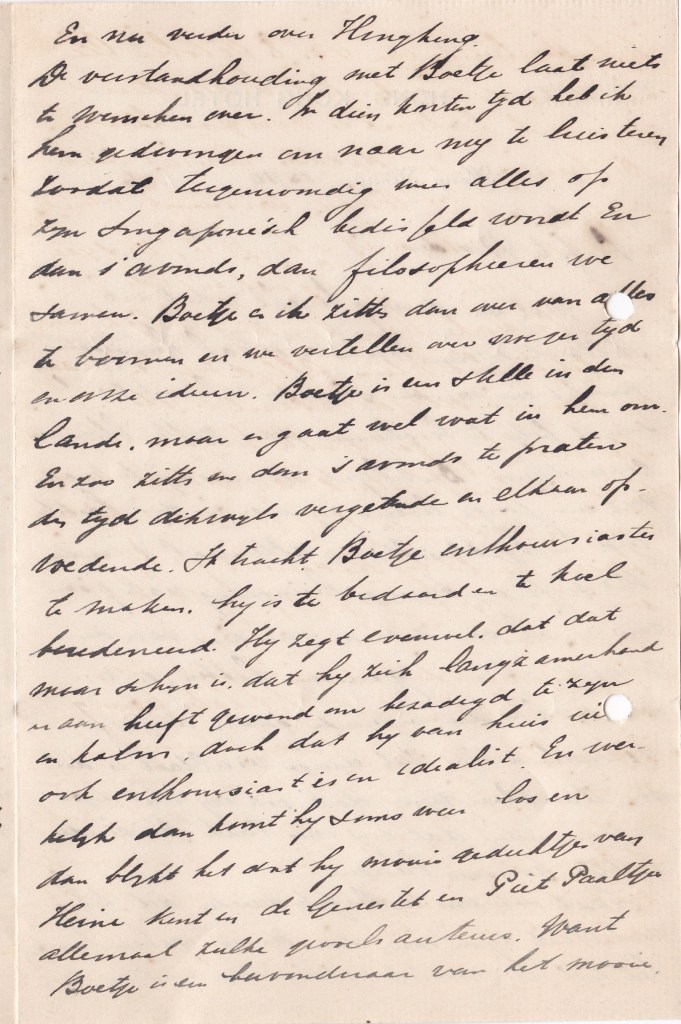 En nu verder over Hengkeng.
De verstandhouding met Boetje laat niets
te wenschen over. In dien korten tyd heb ik
hem gedwongen om naar my te luisteren
zoodat tegenwoordig weer alles op
zyn Singaporeesch bedisfeld wordt En
dan 's avonds, dan filosopheeren we
samen. Boetje en ik zitten dan over van alles
te boomen en we vertellen over vroeger tyd
en onze ideeen. Boetje is een stille in den
lande, maar er gaat wel wat in hem om.
En zoo zitten we dan 's avonds te praten
den tyd dikwyls vergetende en elkaar op-
wedende. Ik tracht Boetje enthousiaster
te maken, hy is te bedaard en te koel
beredeneerd. Hy zegt evenwel, dat dat
maar schyn is, dat hy zich langzamerhand
er aan heeft gewend om bezadigd te zyn
en kalm, doch dat hy van huis uit
ook enthousiast is en idealist. En wer-
kelyk dan komt hy soms weer los en
dan blykt het dat hy mooie gedichtjes van
Heine kent en de Genestet en Piet Paaltjes
allemaal zulke gevoelsauteurs. Want
Boetje is een bewonderaar van het mooie.